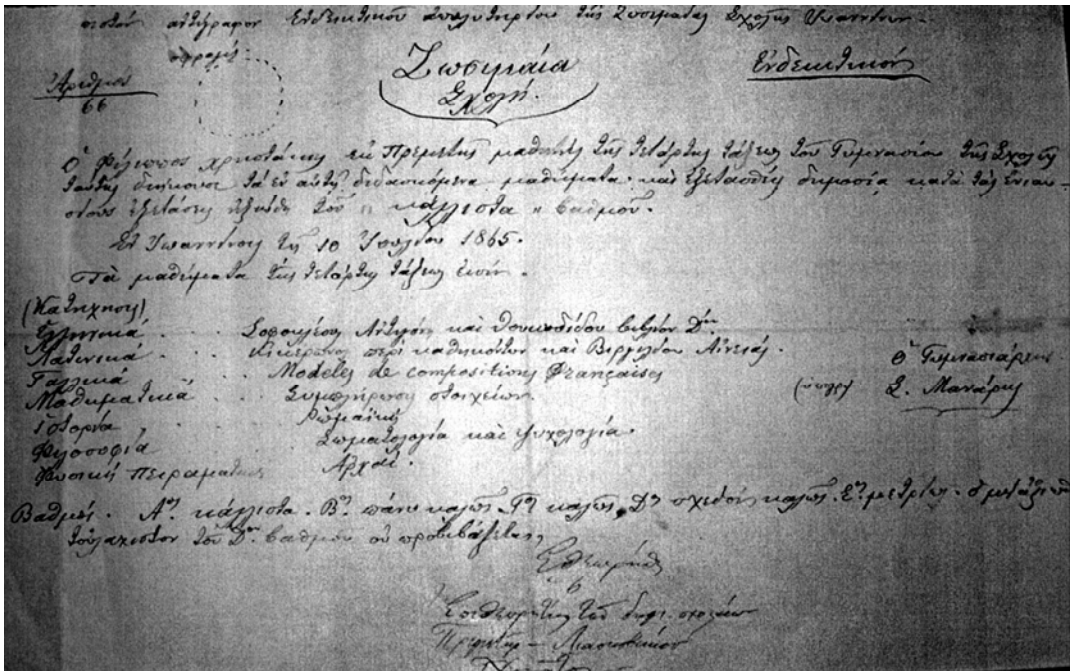 πιστὸν ἀντίγραφον Ἐνδεικτικοῦ ἀπολυτηρίου τῆς Ζωσιμαίας Σχολῆς Ἰωαννίνων.
σφραγίς
Ἀριθμὸς
66
Ζωσιμαία
Σχολή.
Ἐνδεικτικόν
Ὁ Φίλιππος Χρηστάκης ἐκ Πρεμετῆς μαθητὴς τῆς τετάρτης τάξεως τοῦ Γυμνασίου τῆς Σχολῆς
ταύτης διήκουσε τὰ ἐν αὐτῇ διδασκόμενα μαθήματα καὶ ἐξετασθεὶς δημοσίᾳ κατὰ τὰς ἐνιαυ-
σίους ἐξετάσεις ἠξιώθη τοῦ " κάλλιστα " βαθμοῦ.
Ἐν Ἰωαννίνοις τῇ 10 Ἰουλίου 1865.
Τὰ μαθήματα τῆς τετάρτης τάξεως εἰσίν.
(Κατήχησις)
Ἑλληνικά . . Σοφοκλέους Ἀντιγόνη καὶ Θουκυδίδου βιβλίον Δον
Λατινικά . . Κικέρωνος περὶ καθηκόντων καὶ Βιργιλίου Αἰνειάς.
Γαλλικά . . Modeles de compositions Françaises
Μαθηματικά . . Συμπλήρωσις στοιχείων.
Ἱστορία Ῥωμαϊκή
Φιλοσοφία Σωματολογία καὶ ψυχολογία.
Φυσικὴ Πειραματική Ἀρχαί.
Ὁ Γυμνασιάρχης
(ὑπογρ) Σ. Μανάρης
Βαθμοί. Αος κάλλιστα. Βος πάνυ καλῶς. Γος καλῶς. Δος σχεδὸν καλῶς. Εος μετρίως. ὁ μὴ ἀξιωθεὶς
τοὐλάχιστον τοῦ Δου βαθμοῦ οὐ προβιβάζεται,
Ἐθεωρήθη
Ὁ Ἐπιθεωρητὴς τῶν δημ. σχολείων